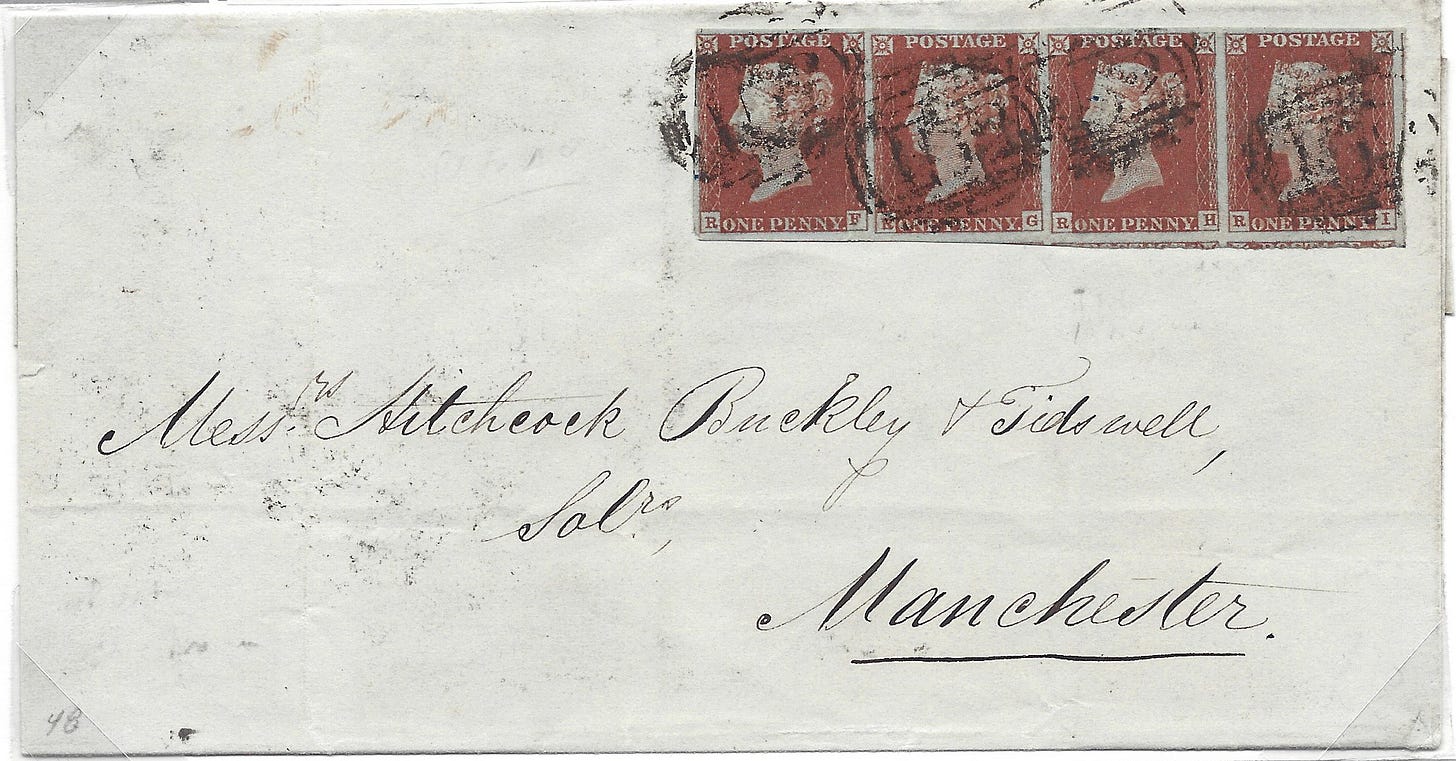 POSTAGE POSTAGE POSTAGE POSTAGE
R ONE PENNY. F R ONE PENNY. G R ONE PENNY. H R ONE PENNY. I
Messrs. Hitchcock Buckley & Tidswell,
Solrs,
Manchester.
48